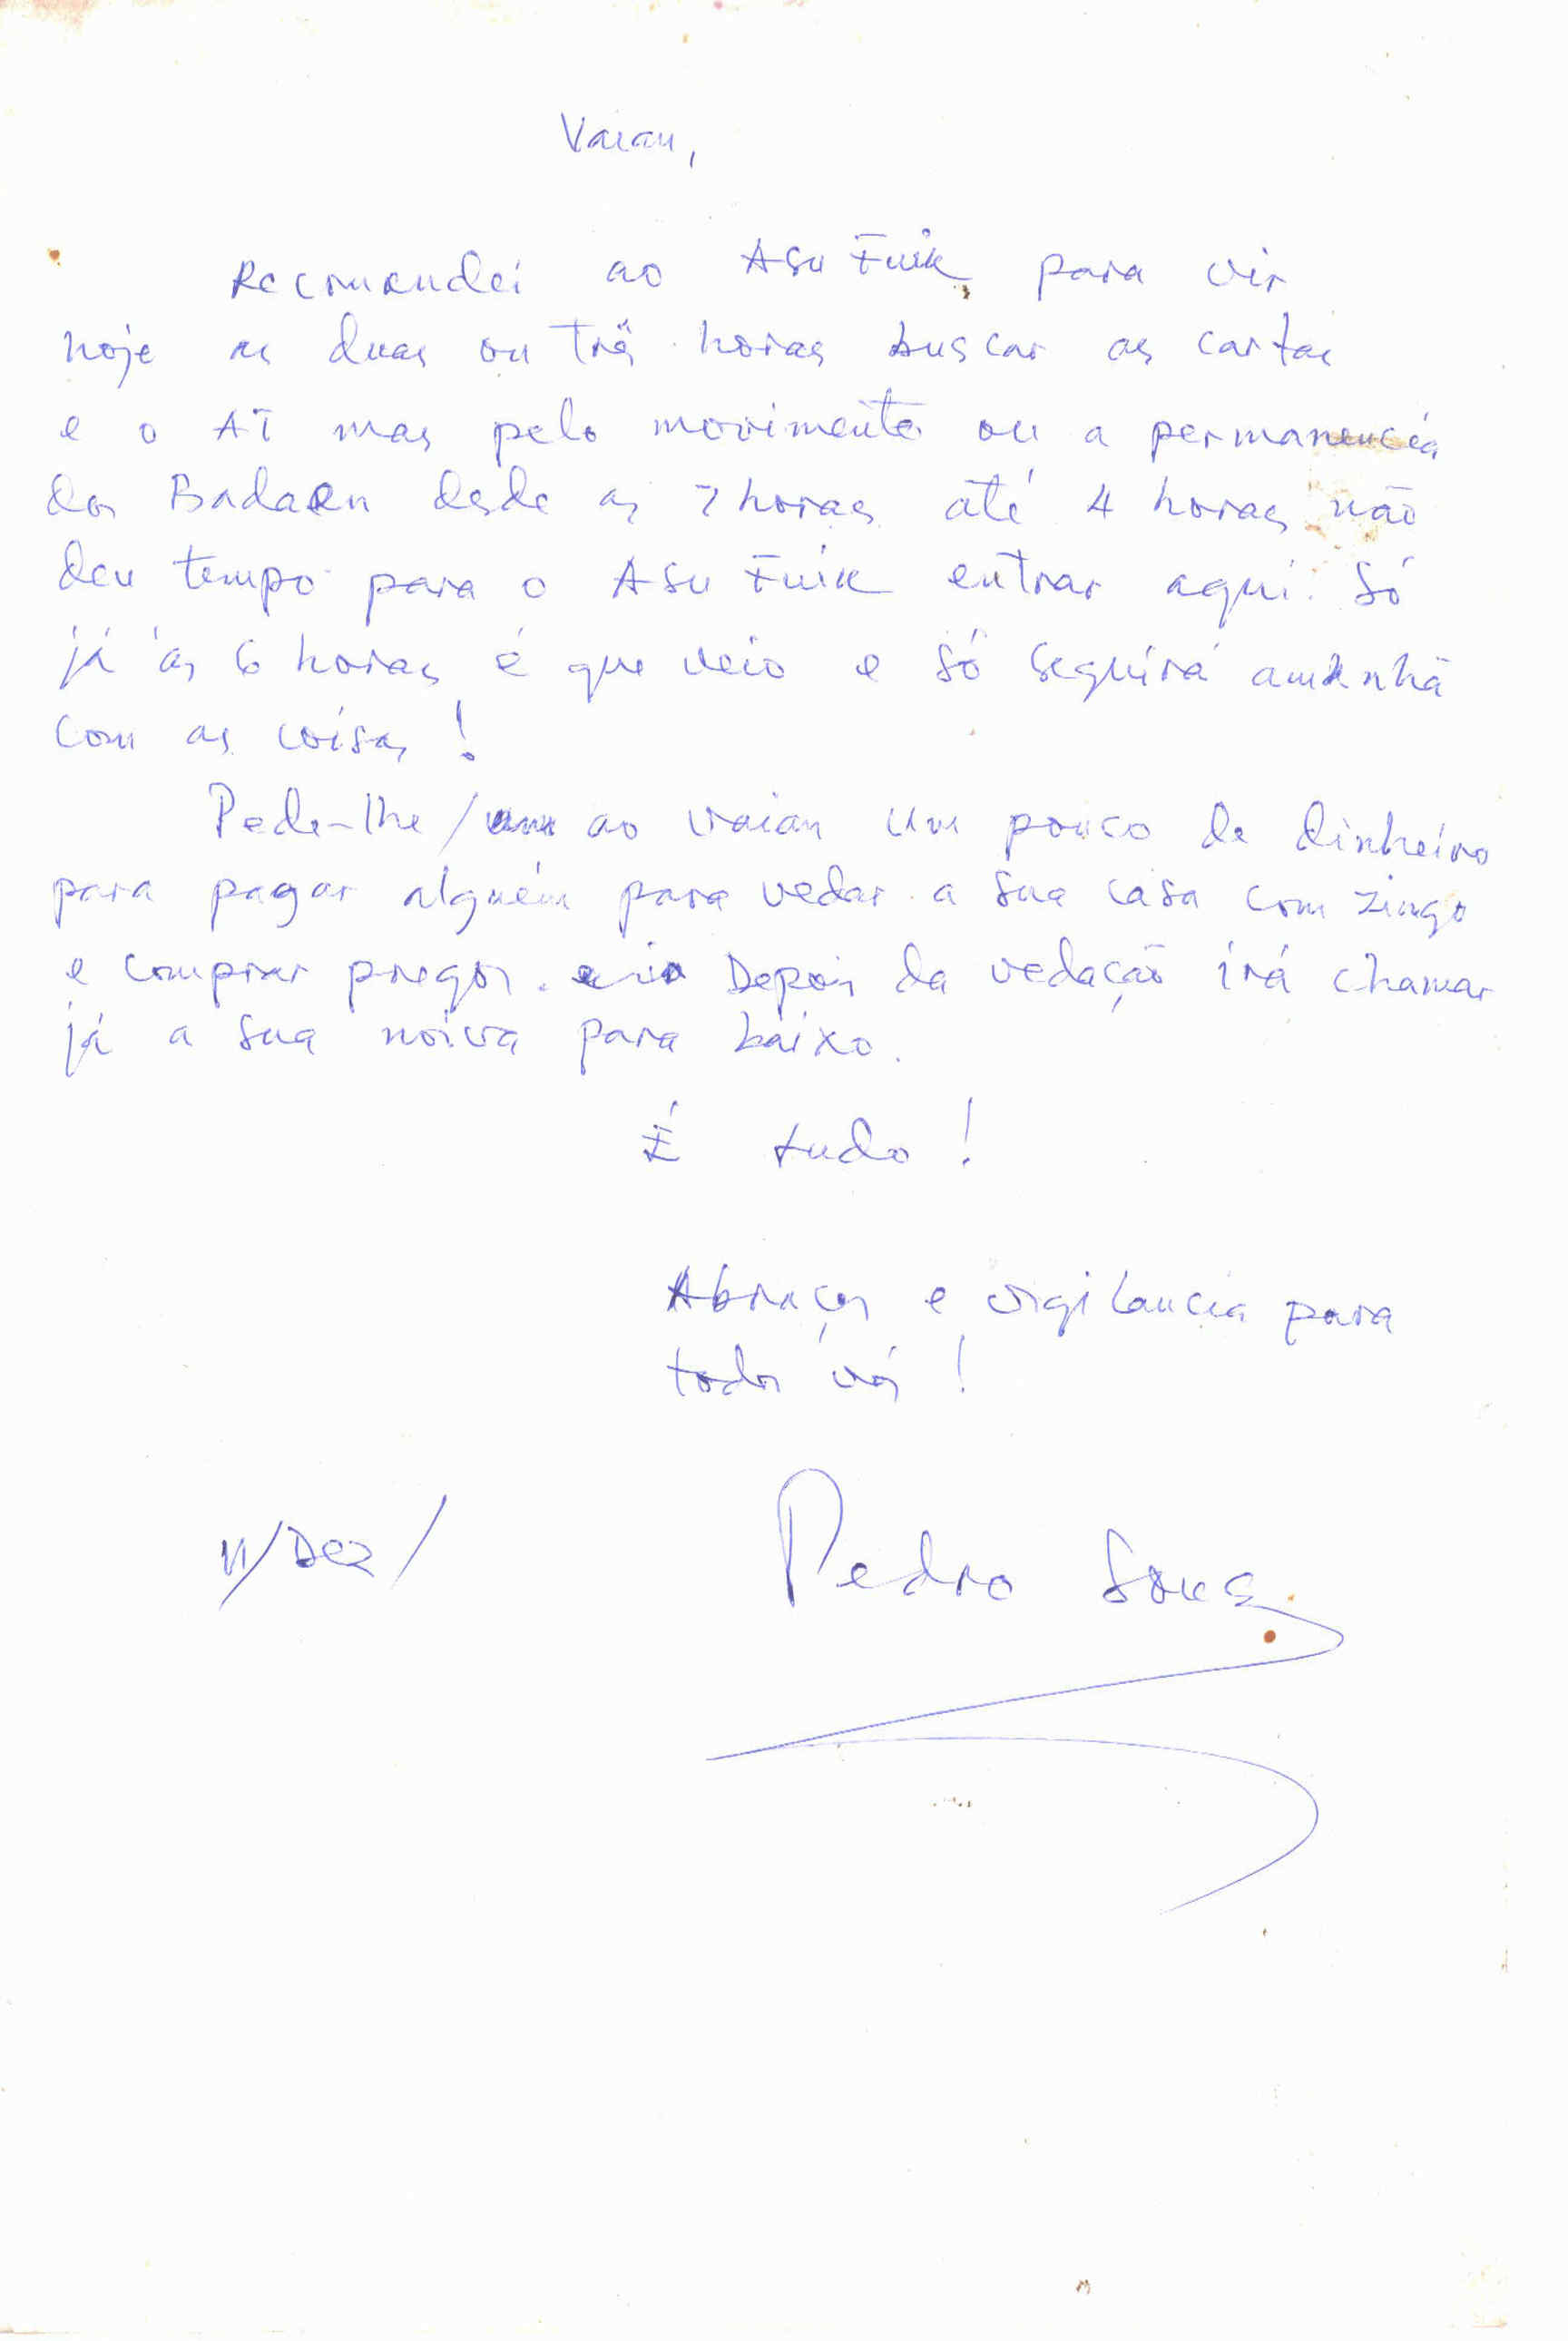 Vaian,
Recomendei ao Asu Fuik para vir
hoje as duas ou três horas buscar as cartas
e o AT mas pelo movimento ou a permanencia
dos Badaen desde as 7 horas até 4 horas não
deu tempo para o Asu Fuik entrar aqui. Só
já às 6 horas é que veio e só seguirá amanhã
com as coisas!
Pede-lhe / ao vaian um pouco de dinheiro
para pagar alguém para vedar a sua casa com zingo
e comprar pregos. Depois da vedação irá chamar
já a sua noiva para baixo.
É tudo!
Abraços e vigilancia para
todos vós!
11/Dez/
Pedro Sous